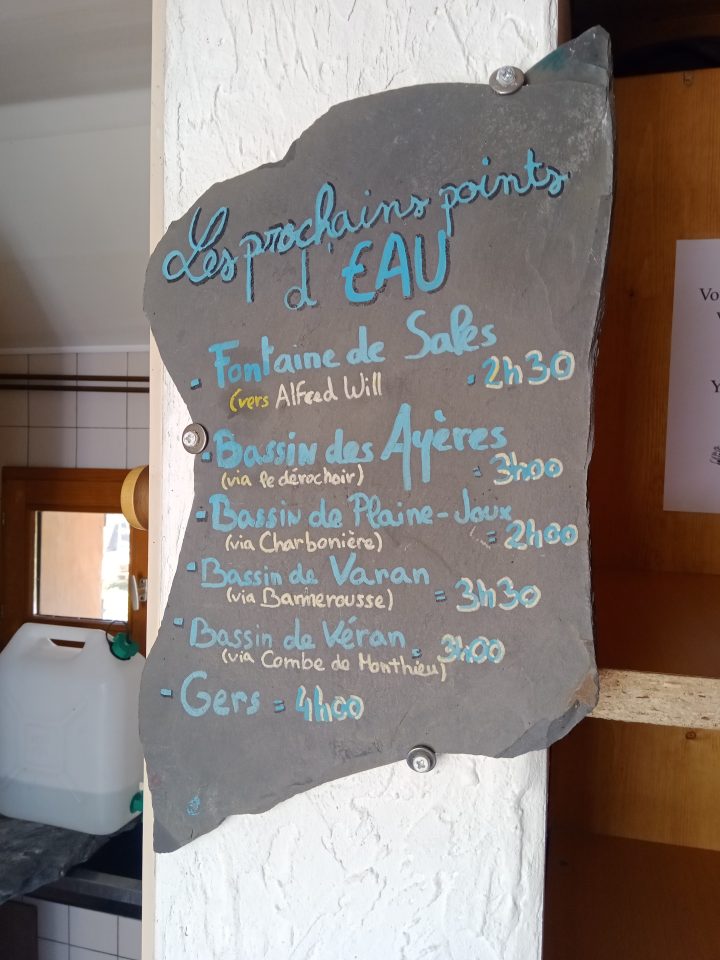 Les prochains points
d'EAU
- Fontaine de Sales = 2h30
(vers Alfred Will
- Bassin des Ayères = 3h00
(via le dérochoir)
- Bassin de Plaine-Joux = 2h00
(via Charbonière)
- Bassin de Varan = 3h30
(via Bannerousse)
- Bassin de Véran = 3h00
(via Combe de Monthieu)
- Gers = 4h00
Vo
Y